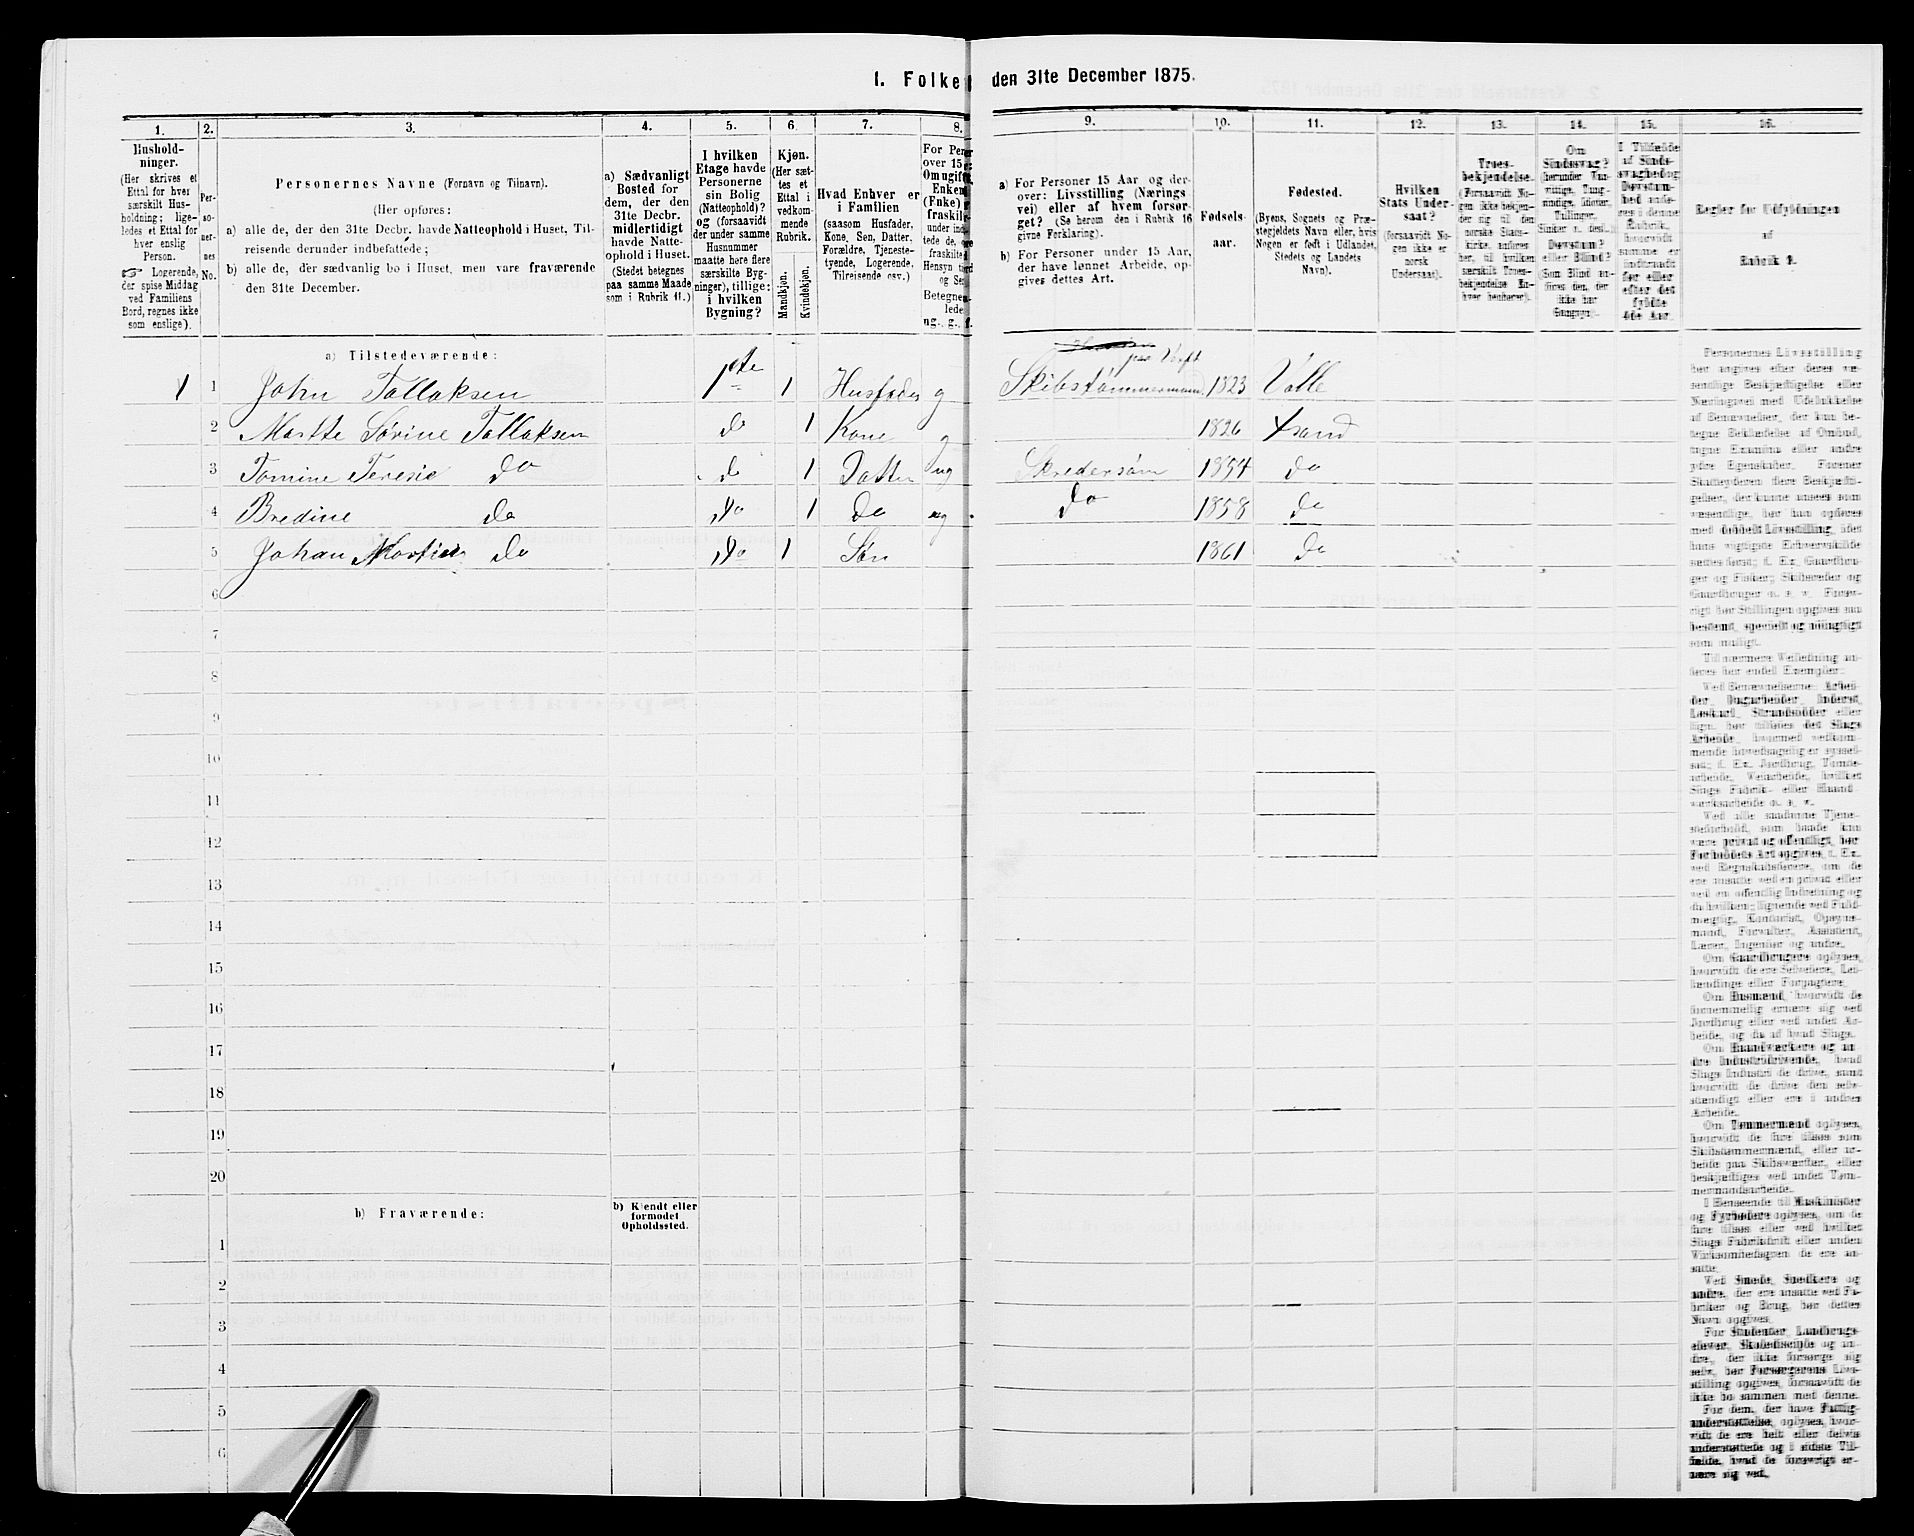 I. Folke
den 31te December 1875.
1. 2. 3. 4. 5. 6. 7. 8. 9. 10. 11. 12. 13. 14. 15. 16.
Hushold-
ninger.
(Her skrives et
Ettal for hver
særskilt Hus-
holdning; lige-
ledes et Ettal for
hver enslig
Person.
☞ Logerende,
der spise Middag
ved Familiens
Bord, regnes ikke
som enslige).
Per-
so-
ner-
nes
No.
Personernes Navne (Fornavn og Tilnavn).
(Her opføres:
a) alle de, der den 31te Decbr. havde Natteophold i Huset, Til-
reisende derunder indbefattede;
b) alle de, der sædvanlig bo i Huset, men vare fraværende
den 31te December.
a) Sædvanligt
Bosted for
dem, der den
31te Decbr.
midlertidigt
havde Natte-
ophold i Huset.
(Stedet betegnes
paa samme Maade
som i Rubrik 11.)
I hvilken
Etage havde
Personerne
sin Bolig
(Natteophold)?
og (forsaavidt
der under samme
Husnummer
maatte høre flere
særskilte Byg-
ninger), tillige:
i hvilken
Bygning?
Kjøn.
(Her sæt-
tes et
Ettal i
vedkom-
mende
Rubrik.
Mandkjøn.
Kvindekjøn.
Hvad Enhver er
i Familien
(saasom Husfader,
Kone, Søn, Datter,
Forældre, Tjeneste-
tyende, Logerende,
Tilreisende osv.)
For Per
over 15
Om ugift
Enken
(Enke)
fraskilt
under ind-
tede de,
fraskilte
Hensyn
og Se
Betegne
lede
ug., g.,
a) For Personer 15 Aar og der-
over: Livsstilling (Nærings-
vei) eller af hvem forsør-
get? (Se herom den i Rubrik 16
givne Forklaring).
b) For Personer under 15 Aar,
der have lønnet Arbeide, op-
gives dettes Art.
Fødsels-
aar.
Fødested.
(Byens, Sognets og Præ-
stegjeldets Navn eller, hvis
Nogen er født i Udlandet,
Stedets og Landets
Navn).
Hvilken
Stats Under-
saat?
(forsaavidt No-
gen ikke er
norsk
Undersaat).
Troes-
bekjendelse.
(Forsaavidt No-
gen ikke bekjen-
der sig til den
norske Stats-
kirke, anføres
her, til hvilken
særskilt Troes-
bekjendelse En-
hver henhører).
Om
Sindssvag?
(herunder Van-
vittige, Tung-
sindige, Idioter,
Tullinger,
Sinker o. desl.)
Døvstum?
eller Blind?
(Som Blind an-
føres den, der
ikke har
Gangsyn).
I Tilfælde
af Sinds-
svaghed og
Døvstum-
hed anfø-
res i denne
Rubrik,
hvorvidt
samme er
indtraadt
før eller
efter det
fyldte
4de Aar.
Regler for Udfyldningen
af
Rubrik 9.
a) Tilstedeværende:
1 1 John Tallaksen 1ste 1 Husfader g Skibstømmermand paa Værft 1823 Valle
2 Marthe Sørine Tallaksen do 1 Kone g 1826 Xsand
3 Tomine Teresie do do 1 Datter ug Skredersøm 1854 do
4 Bredine do do 1 do ug do 1858 do
5 Johan Martin do do 1 Søn 1861 do
6
7
8
9
10
11
12
13
14
15
16
17
18
19
20
b) Fraværende:
b) Kjendt eller
formodet
Opholdssted.
1
2
3
4
5
6
Personernes Livsstilling
bør angives efter deres væ-
sentlige Beskjæftigelse eller
Næringsvei med Udelukkelse
af Benævnelser, der kun be-
tegne Beklædelse af Ombud,
tagne Examina eller andre
ydre Egenskaber. Forener
Skatteyderen flere Beskjæfti-
gelser, der kunne ansees som
væsentlige, bør han opføres
med dobbelt Livsstilling, idet
hans vigtigste Erhvervskilde
sættes først; f. Ex. Gaardbru-
ger og Fisker; Skibsreder og
Gaardbruger o. s. v. Forøv-
rigt bør Stillingen opgives saa
bestemt, specielt og nøiagtigt
som muligt.
Til nærmere Veiledning an-
føres her endel Exempler:
Ved Benævnelserne: Arbei-
der, Dagarbeider, Inderst,
Løskarl, Strandsidder eller
lign. bør tilføies det Slags
Arbeide, hvormed vedkom-
mende hovedsagelig er syssel-
sat; f. Ex. Jordbrug, Tømte-
arbeide, Veiarbeide, hvilket
Slags Fabrik- eller Haand-
værksarbeide o. s. v.
Ved alle saadanne Tjene-
steforhold, som baade kan
være privat og offentligt, bør
Forholdets Art opgives, f. Ex.
ved Regnskabsførere, om de
ere ansatte ved en privat eller
ved en offentlig Indretning og
da hvilken; lignende ved Fuld-
mægtig, Kontorist, Opsyns-
mand, Forvalter, Assistent,
Lærer, Ingeniør og andre.
Om Gaardbrugere oplyses,
hvorvidt de ere Selveiere, Lei-
lændinge eller Forpagtere.
Om Husmænd, hvorvidt de
fornemmelig ernære sig ved
Jordbrug eller ved andet Ar-
beide, og da af hvad Slags.
Om Haandværkere og an-
dre Industridrivende, hvad
Slags Industri de drive, samt
hvorvidt de drive den selv-
stændigt eller ere i andres
Arbeide.
Om Tømmermænd oplyses,
hvorvidt de fare tilsøs som
Skibstømmermænd, eller ar-
beide paa Skibsværfter, eller
beskjæftiges ved andet Tøm-
mermandsarbeide.
I Henseende til Maskinister
og Fyrbødere oplyses, om de
fare tilsøs eller ved hvilket
Slags Fabrikdrift eller anden
Virksomhedsgren de ere an-
satte.
Ved Smede, Snedkere og
andre, der ere ansatte ved Fa-
briker og Brug, bør dettes
Navn opgives.
For Studenter, Landbrugs-
elever, Skoledisciple og an-
dre, der ikke forsørge sig
selv, bør Forsørgerens Livs-
stilling opgives, forsaavidt de
ikke bo sammen med denne.
For dem, der have Fattig-
understøttelse, oplyses, hvor-
vidt de ere helt eller delvis
understøttede og i sidste Til-
fælde, hvad de forøvrigt er-
nære sig ved.